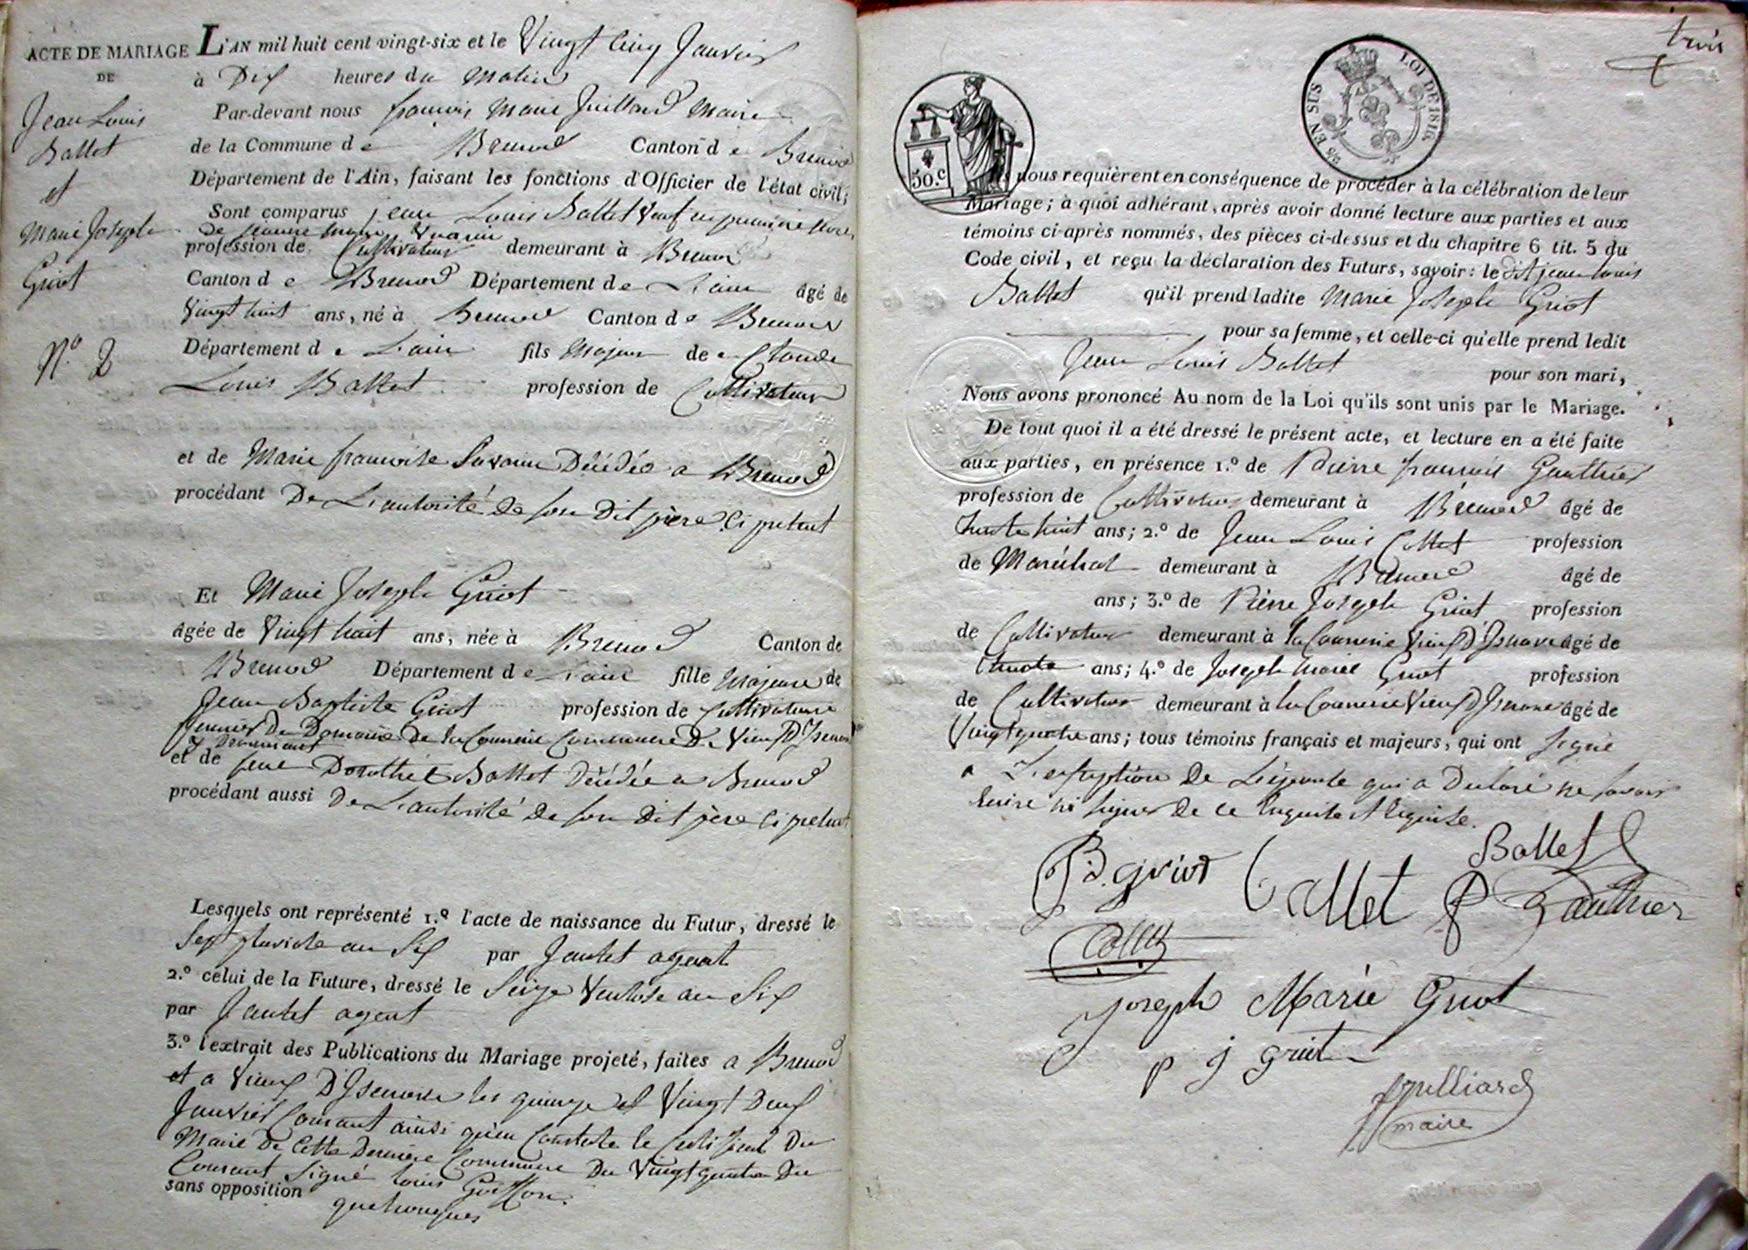 ACTE DE MARIAGE
DE
Jean Louis
Ballet
et
Marie Joseph
Griot
N.º 2
L'AN mil huit cent vingt-six et le Vingt cinq Janvier
à Dix heures du Matin
Par-devant nous françois Marie Juillard Maire
de la Commune de Brenod Canton de Brenod
Département de l'Ain, faisant les fonctions d'Officier de l'état civil;
Sont comparus jean Louis Ballet Veuf en première noces
de jeanne marie
profession de Cultivateur demeurant à Brenod
Canton de Brenod Département de L'ain âgé de
Vingt huit ans, né à Brenod Canton de Brenod
Département de L'ain fils Majeur de Claude
Louis Ballet profession de Cultivateur
et de Marie françoise Savarin Décédée a Brenod
procédant De L'autorité de son Dit père Ci présent
Et Marie Joseph Griot
âgée de Vingt huit ans, née à Brenod Canton de
Brenod Département de L'ain fille Majeure de
Jean Baptiste Griot profession de Cultivateur
fermier du Domaine de La Couverie Commune De Vieux D'Isenave
y demeurant
et de feue Dorothée Ballet Décédée a Brenod
procédant aussi De L'autorité De son Dit père Ci présent
Lesquels ont représenté 1.º l'acte de naissance du Futur, dressé le
Sept pluviose an Six par Jantet agent
2.º celui de la Future, dressé le Seize Ventose an Six
par Jantet agent
3.º l'extrait des Publications du Mariage projeté, faites a Brenod
et a Vieux D'Isenave les quinze et Vingt Deux
Janvier Courant ainsi qu'en Conste le Certificat Du
Maire De Cette Dernière Commune Du Vingt quatre Du
Courant Signé Louis Goiffon.
sans opposition quelconques
trois
50.C
25 EN SUS
LOI DE 1816
nous requièrent en conséquence de procéder à la célébration de leur
Mariage; à quoi adhérant, après avoir donné lecture aux parties et aux
témoins ci-après nommés, des pièces ci-dessus et du chapitre 6 tit. 5 du
Code civil, et reçu la déclaration des Futurs, savoir: le dit jean Louis
Ballet qu'il prend ladite Marie Joseph Griot
pour sa femme, et celle-ci qu'elle prend ledit
Jean Louis Ballet pour son mari,
Nous avons prononcé Au nom de la Loi qu'ils sont unis par le Mariage.
De tout quoi il a été dressé le présent acte, et lecture en a été faite
aux parties, en présence 1.º de Pierre françois Gauthier
profession de Cultivateur demeurant à Brenod âgé de
trente huit ans; 2.º de Jean Louis Collet profession
de Maréchal demeurant à Brenod âgé de
ans; 3.º de Pierre Joseph Griot profession
de Cultivateur demeurant à La Couverie Vieux D'Isenave âgé de
trente ans; 4.º de Joseph Marie Griot profession
de Cultivateur demeurant à La Couverie Vieux D'Isenave âgé de
Vingt quatre ans; tous témoins français et majeurs, qui ont Signé
a L'exception de L'épouse qui a Declaré ne Savoir
Ecrire ni Signer De ce Enquise et Requise.
J B. griot Ballet Ballet
P Gauthier
Collet
Joseph Marie Griot
p j griot
Juilliard
maire